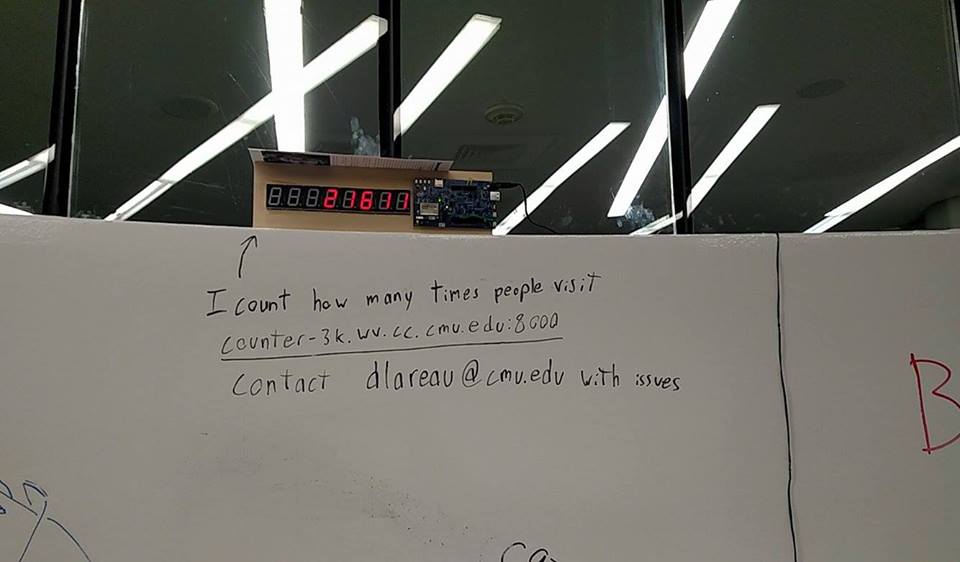 21611
I count how many times people visit
counter-3k.wv.cc.cmu.edu:8000
Contact dlareau@cmu.edu with issues
B
Ca